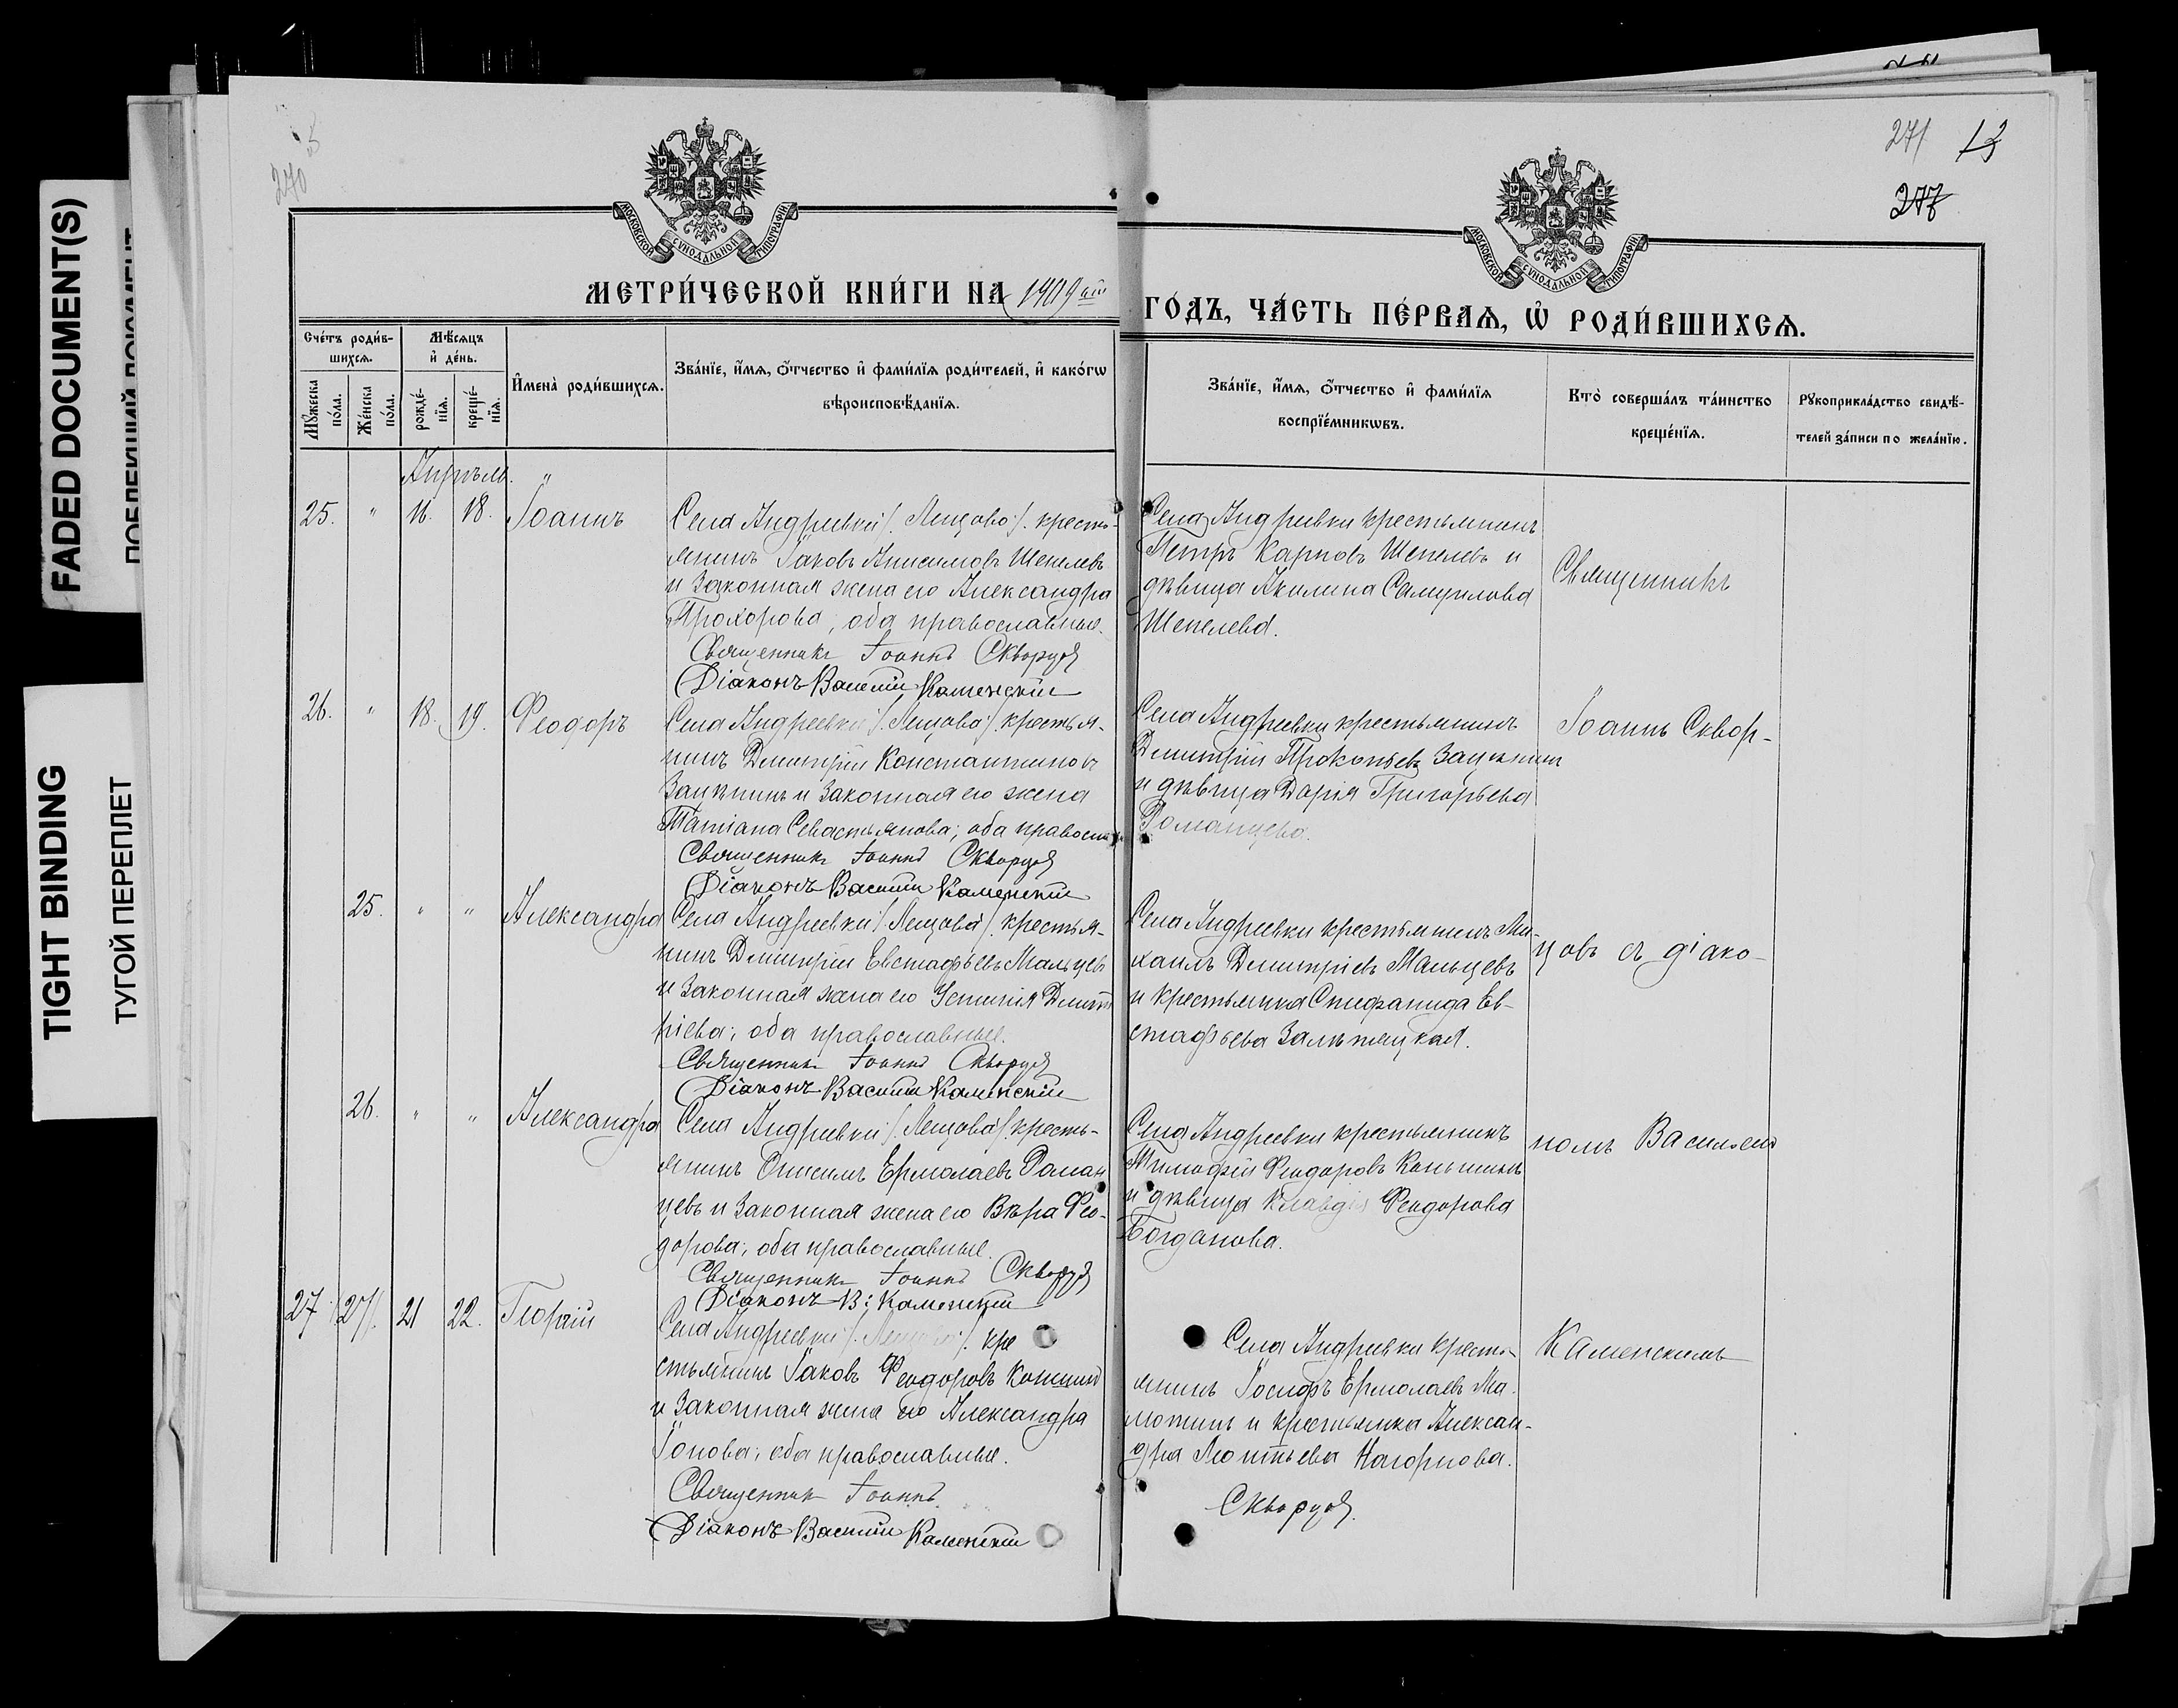 FADED DOCUMENT(S)
TIGHT BINDING
ТУГОЙ ПЕРЕПЛЕТ
270
271 13
277
МОСКОВСКОЙ СѴНОДАЛЬНОЙ ТИПОГРАФІИ
МОСКОВСКОЙ СѴНОДАЛЬНОЙ ТИПОГРАФІИ
МЕТРИ́ЧЕСКОЙ КНИ́ГИ НА 1909 ый
ГО́ДЪ, ЧА́СТЬ ПЕ́РВАѦ, Ѡ҆ РОДИ́ВШИХСѦ.
Сче́тъ роди́в-
шихсѧ.
Мѣ́сѧцъ
и҆ де́нь.
Мꙋ́жеска
по́ла.
Же́нска
по́ла.
рожде́-
нїѧ.
креще́-
нїѧ.
И҆мена̀ роди́вшихсѧ.
Зва́нїе, и҆́мѧ, ѻ҆́тчество и҆ фами́лїѧ роди́телей, и҆ како́гѡ
вѣроисповѣ́данїѧ.
Зва́нїе, и҆́мѧ, ѻ҆́тчество и҆ фами́лїѧ
воспрїе́мникѡвъ.
Кто̀ соверша́лъ та́инство
креще́нїѧ.
Рꙋкоприкла́дство свидѣ́-
телей за́писи по жела́нїю.
Апрѣль.
25. " 16. 18. Іоаннъ
Села Андреевки /:Лещово:/ кресть-
янинъ Іаковъ Анисимовъ Шепелевъ
и законная жена его Александра
Прохорова, оба православные.
Священникъ Іоаннъ Скворцовъ
Діаконъ Василій Каменскій
Села Андреевки крестьянинъ
Петръ Карповъ Шепелевъ и
дѣвица Акилина Самуилова
Шепелева.
Священникъ
26. " 18. 19. Ѳеодоръ
Села Андреевки /:Лещово:/ крестья-
нинъ Димитрій Константиновъ
и законная его жена
Татіана Севастьянова; оба правосл
Священникъ Іоаннъ Скворцовъ
Діаконъ Василій Каменскій
Села Андреевки крестьянинъ
Димитрій Прокопьевъ
и дѣвица Дарія Григорьева
Романцева.
Іоаннъ Сквор-
25. " " Александра
Села Андреевки /:Лещово:/ крестья-
нинъ Димитрій Евстафьевъ Мальцевъ
и законная жена его Устинія Димит
ріева; оба православные.
Священникъ Іоаннъ Скворцовъ
Діаконъ Василій Каменскій
Села Андреевки крестьянинъ Ми-
хаилъ Димитріевъ Мальцевъ
и крестьянка Епифанида Ев-
стафьева
цовъ съ діако-
26. " " Александра
Села Андреевки /:Лещово:/ кресть-
янинъ Онисимъ Ермолаевъ Роман
цевъ и законная жена его Вѣра Ѳео-
дорова; оба православные.
Священникъ Іоаннъ Скворцовъ
Діаконъ В: Каменскій
Села Андреевки крестьянинъ
Тимофей Ѳеодоровъ Коньшинъ
и дѣвица Клавдія Ѳеодорова
Богданова.
номъ Василіемъ
27. /27/. 21 22. Георгій
Села Андреевки /:Лещово:/ кре
стьянинъ Іаковъ Ѳеодоровъ Коншинъ
и законная жена его Александра
Іонова; оба православные.
Священникъ Іоаннъ
Діаконъ Василій Каменскій
Села Андреевки кресть-
янинъ Іосифъ Ермолаевъ Ма-
мотинъ и крестьянка Алексан-
дра Леонтьева Нагорнова.
Скворцовъ.
Каменскимъ